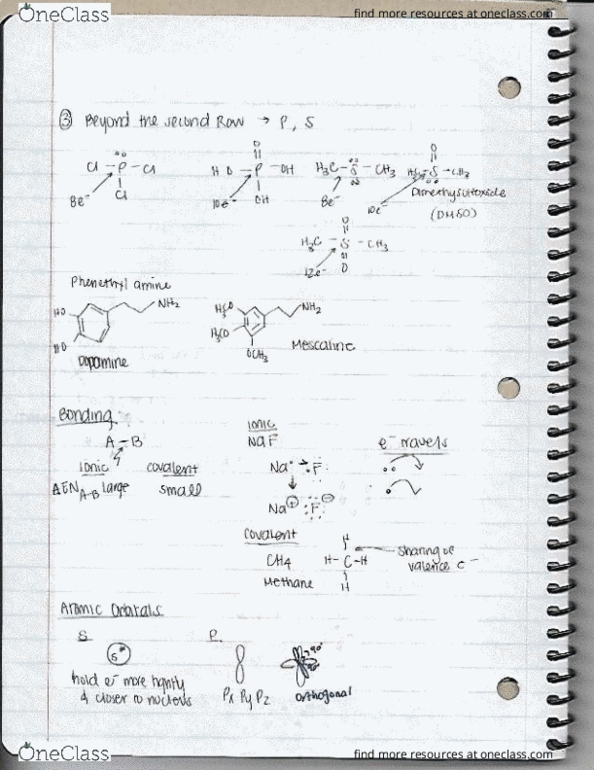 OneClass
find more resources at oneclass.com
③ Beyond the second Row → P, S
Cl – P – Cl
Cl
8e⁻
HO – P – OH
O
OH
10e⁻
H₃C – S – CH₃
8e⁻
O
H₃C – S – CH₃
10e⁻
Dimethylsulfoxide
(DMSO)
O
H₃C – S – CH₃
O
12e⁻
Phenethyl amine
HO
HO
NH₂
Dopamine
H₃CO
H₃CO
OCH₃
NH₂
Mescaline
Bonding
A – B
ionic covalent
ΔEN A-B large small
Ionic
NaF
Na• → :F:
Na⊕ :F:⊖
e⁻ travels
covalent
CH4
Methane
H
H – C – H
H
sharing of
valence e⁻
Atomic Orbitals
S P
S
hold e⁻ more tightly
& closer to nucleus
Px Py Pz
90°
90°
orthogonal
OneClass
find more resources at oneclass.com